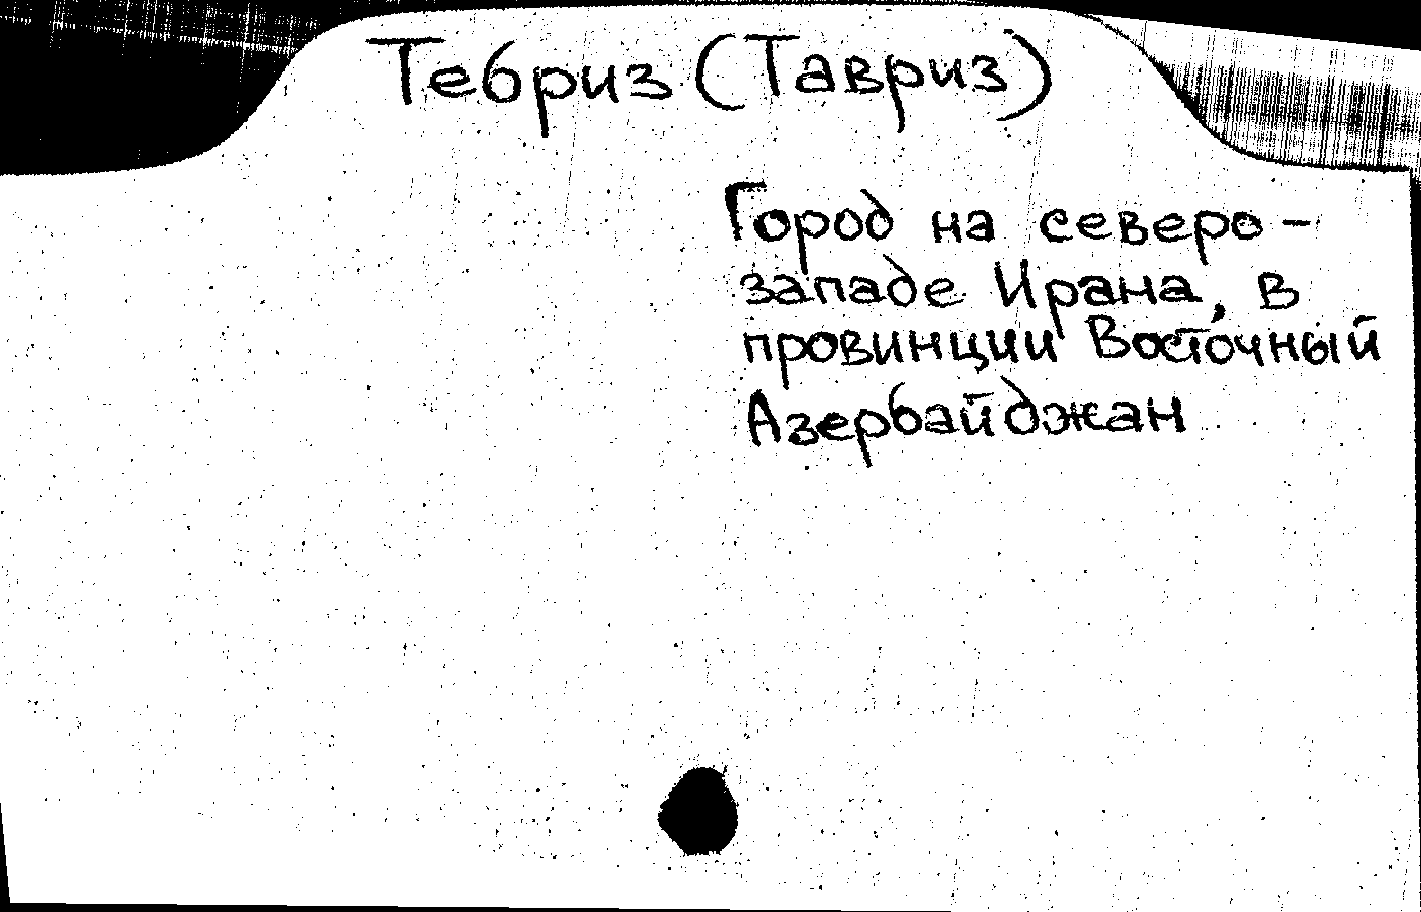 Тебриз (Тавриз)
Город на северо-
западе Ирана, в
провинции Восточный
Азербайджан